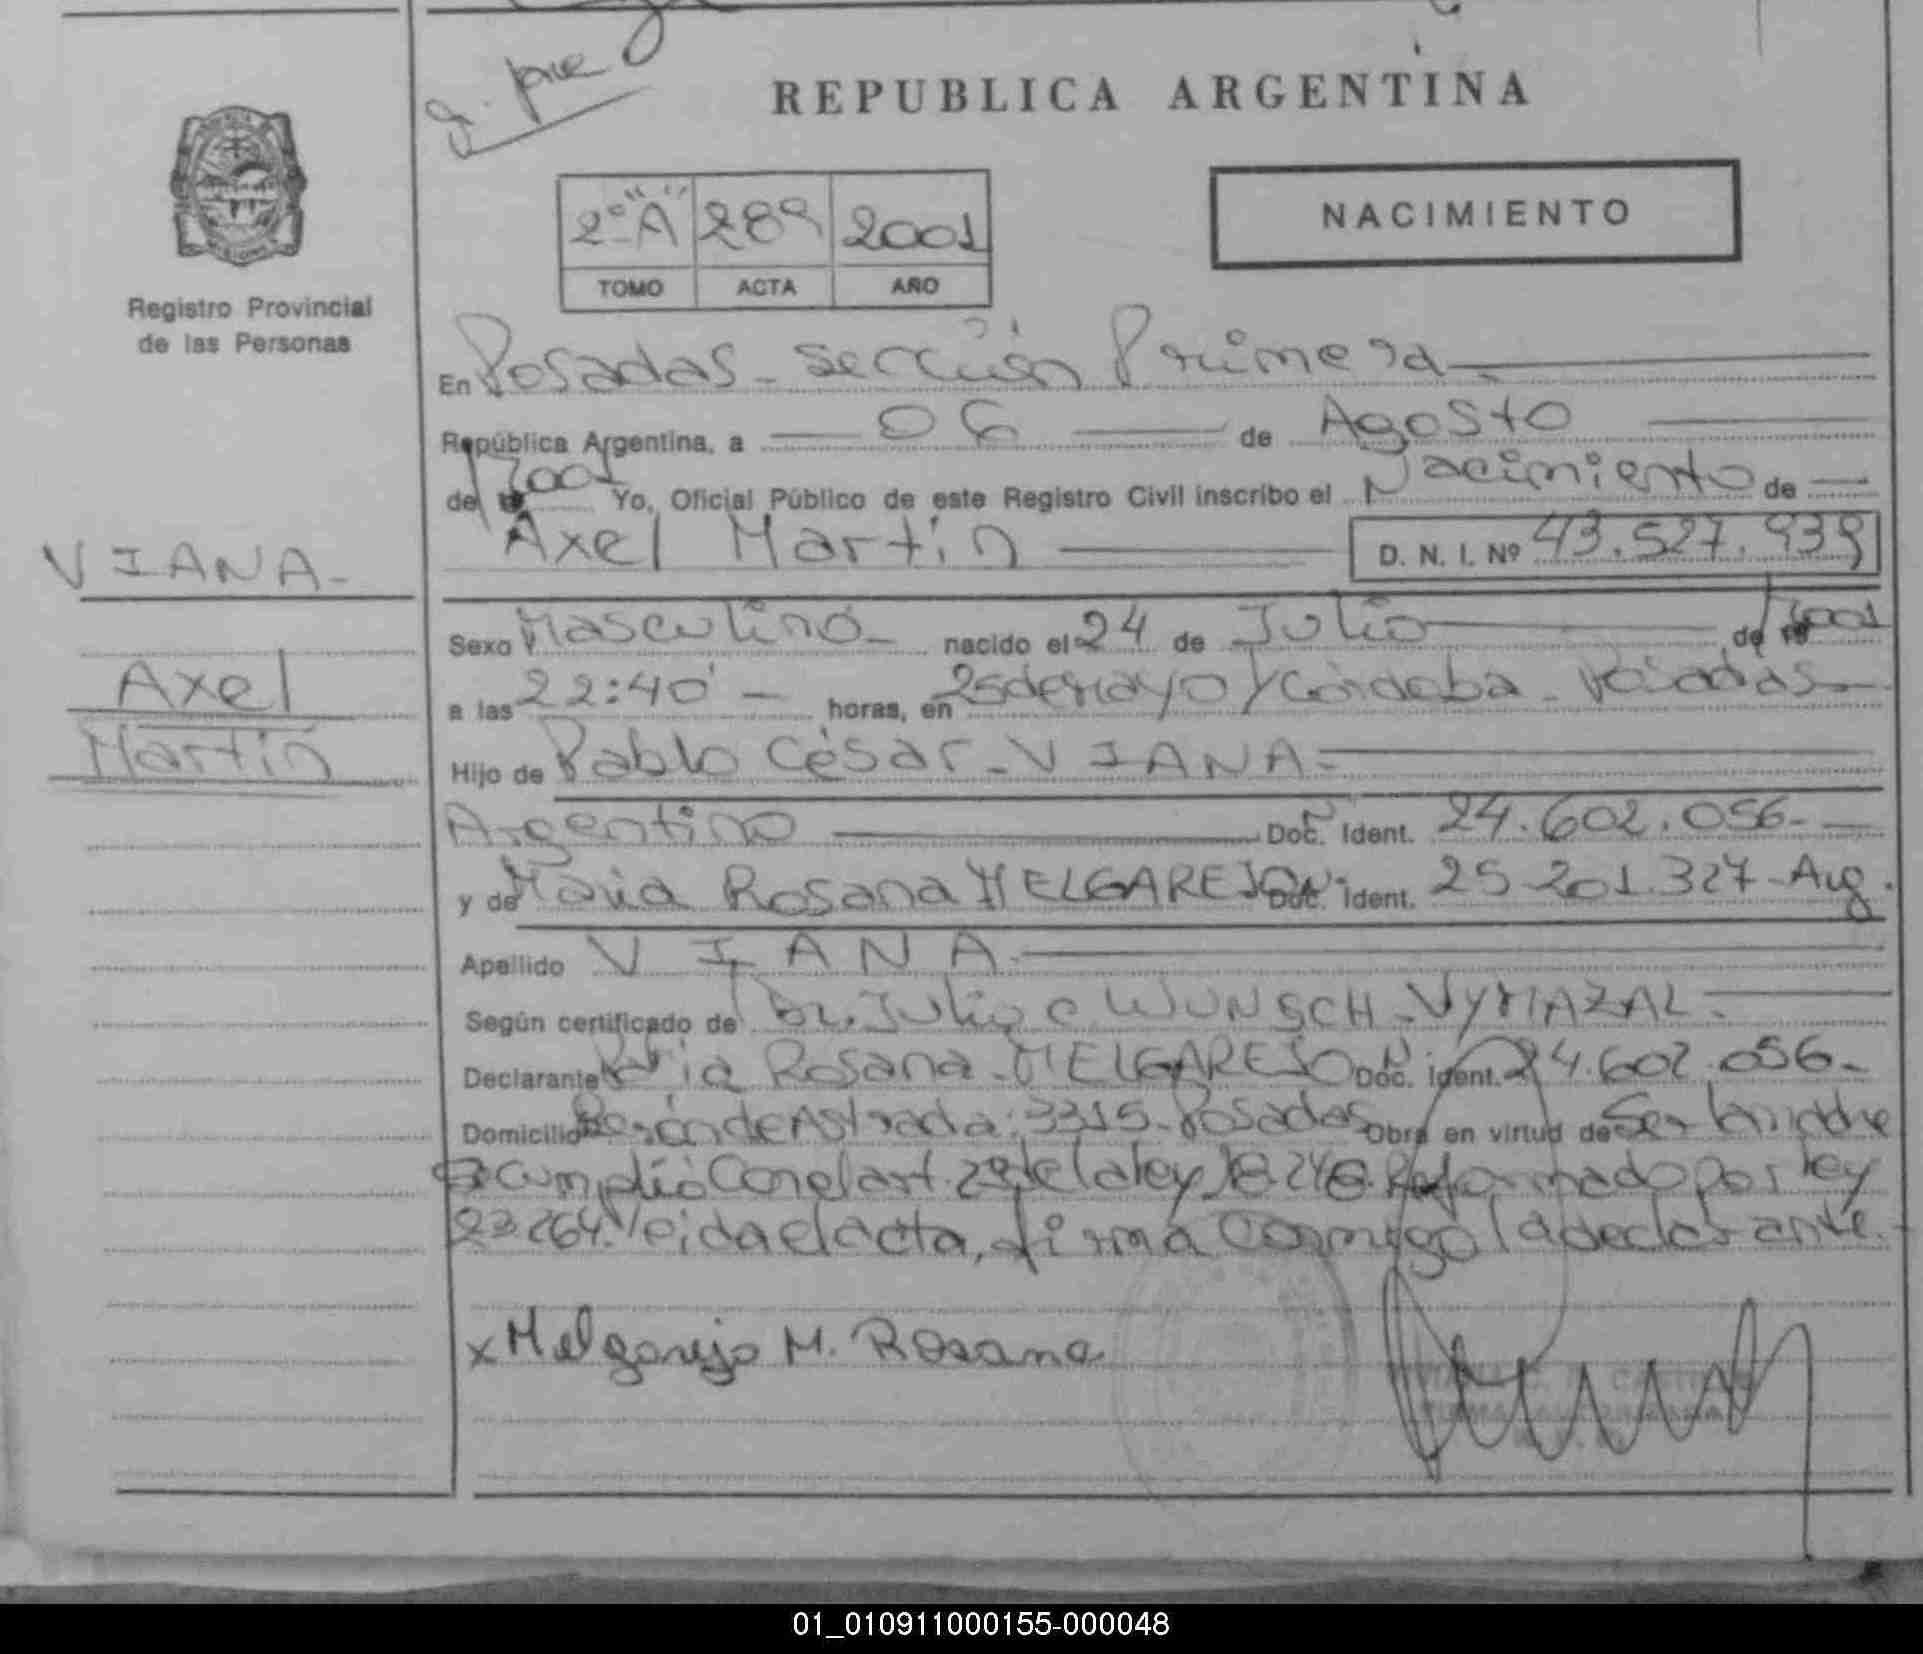 REPUBLICA ARGENTINA
2º "A" 289 2001
TOMO ACTA AÑO
NACIMIENTO
Registro Provincial
de las Personas
En Posadas - Sección Primera
República Argentina, a 06 de Agosto
de 2001 Yo, Oficial Público de este Registro Civil inscribo el Nacimiento de
Axel Martín D. N. I. Nº 43.527.939
VIANA-
Axel
Martín
Sexo Masculino nacido el 24 de Julio de 2001
a las 22:40 - horas, en 25 de Mayo y Córdoba - Posadas
Hijo de Pablo César - VIANA-
Argentino Doc. Ident. 24.602.056-
y de María Rosana MELGAREJO Doc. Ident. 25.201.327- Arg.
Apellido VIANA-
Según certificado de Dr. Julio C WUNSCH - VYMAZAL-
Declarante María Rosana - MELGAREJO Doc. Ident. 24.602.056-
Domicilio de Astrada: 3315 - Posadas Obra en virtud de Ser la madre
Se cumplió con el art. 29 de la ley 18.248 Reformado por ley
23.264. leida el acta, firma conmigo la declarante.
x Melgarejo M. Rosana
01_010911000155-000048